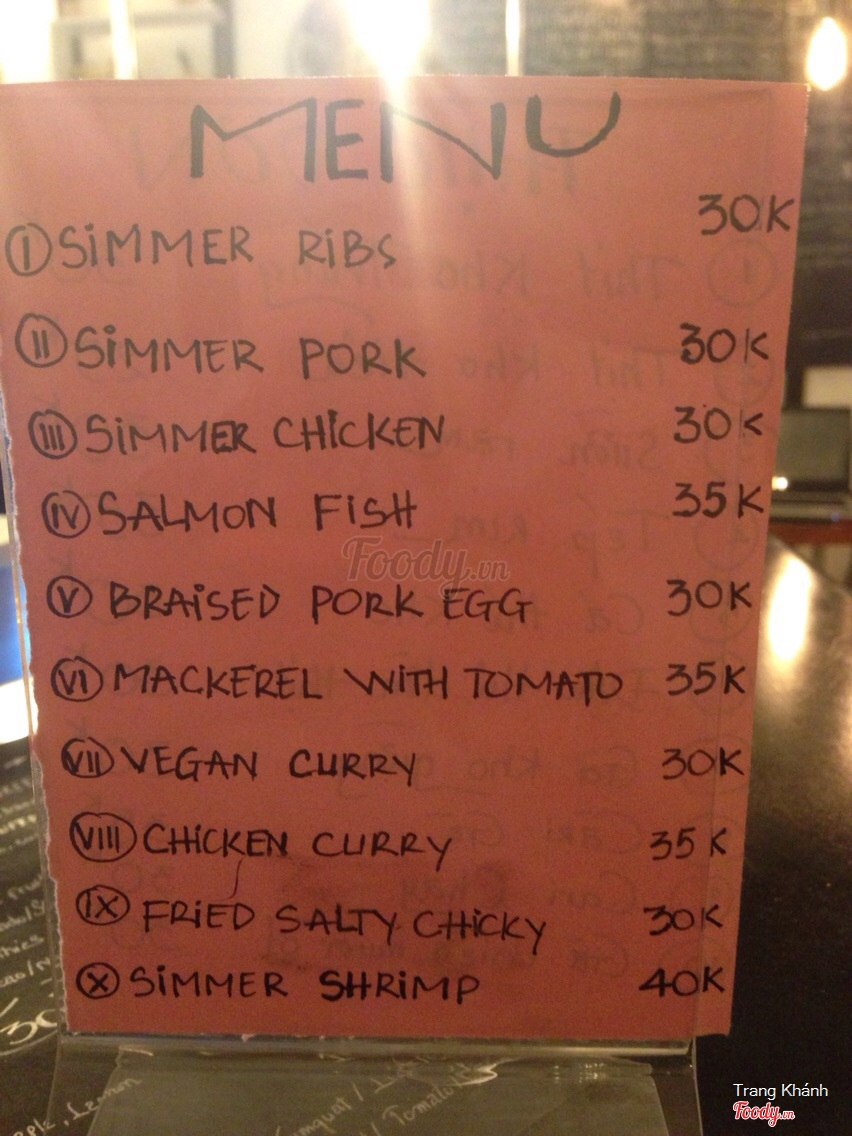 MENU
I SiMMER RiBS 30K
II SiMMER PORK 30K
III SiMMER CHiCKEN 30K
IV SALMON FiSH 35K
Foody.vn
V BRAiSED PORK EGG 30K
VI MACKEREL WiTH TOMATO 35K
VII VEGAN CURRY 30K
VIII CHiCKEN CURRY 35K
IX FRiED SALTY CHiCKY 30K
X SiMMER SHRiMP 40K
Trang Khánh
Foody.vn